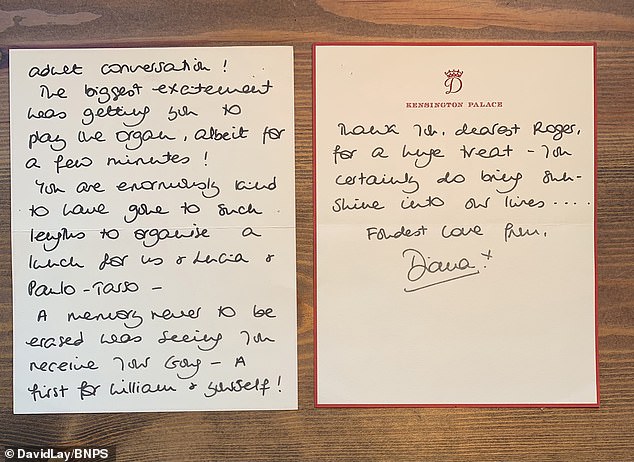 adult conversation!
The biggest excitement
was getting you to
play the organ, albeit for
a few minutes!
You are enormously kind
to have gone to such
lengths to organise a
lunch for us & Lucia &
Paulo-Tasso -
A memory never to be
erased was seeing you
receive your Gong - A
first for William & yourself!
D
KENSINGTON PALACE
Thank you, dearest Roger,
for a huge treat - you
certainly do bring sun-
shine into our lives ....
Fondest love from,
Diana. x
© DavidLay/BNPS